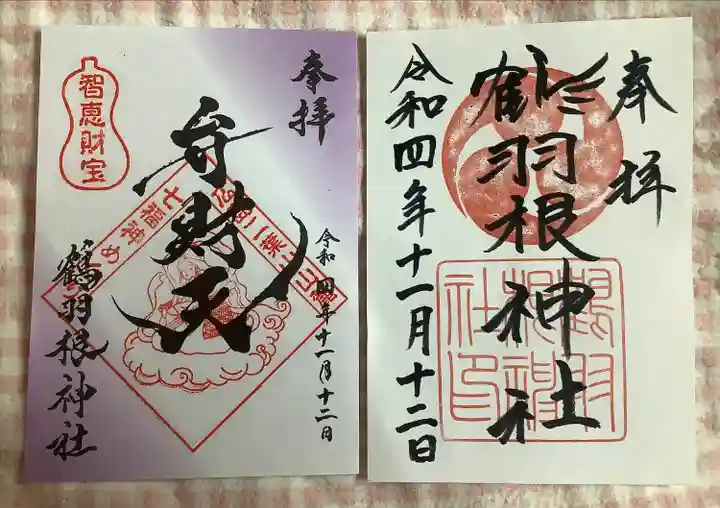 奉拝
鶴羽根神社
令和四年十一月十二日
鶴羽根神社印
奉拝
智恵財宝
弁財天
七福神め
二葉
令和四年十一月十二日
鶴羽根神社